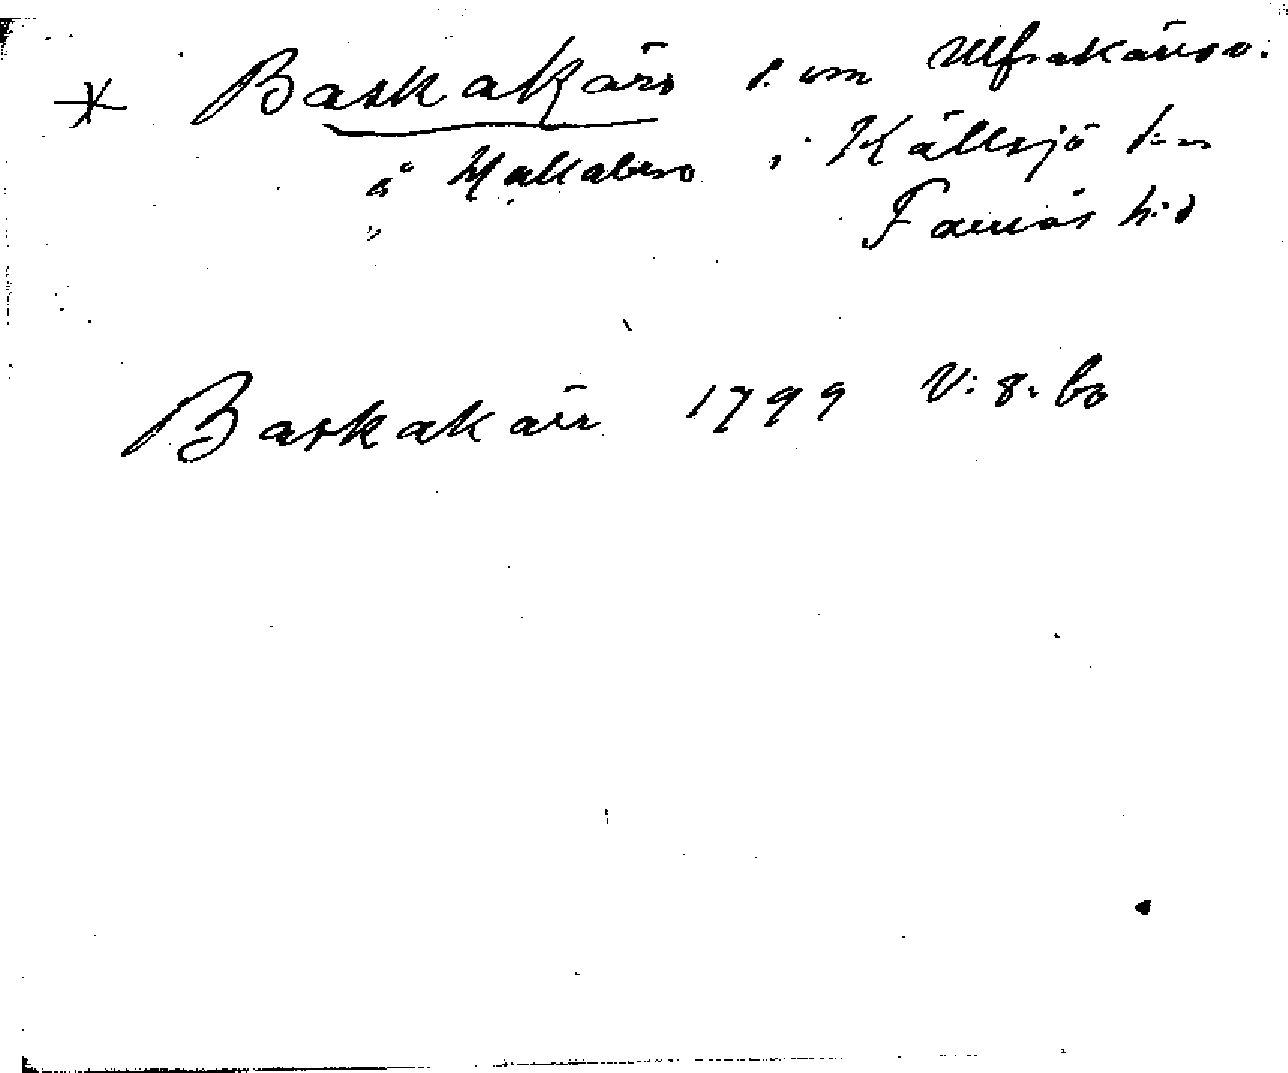 * Baskakärr s. om Ulfsakärret.
å Hallabero i Källsjö s:n
Faurås h:d
Baskakärr 1799 V:8. bo